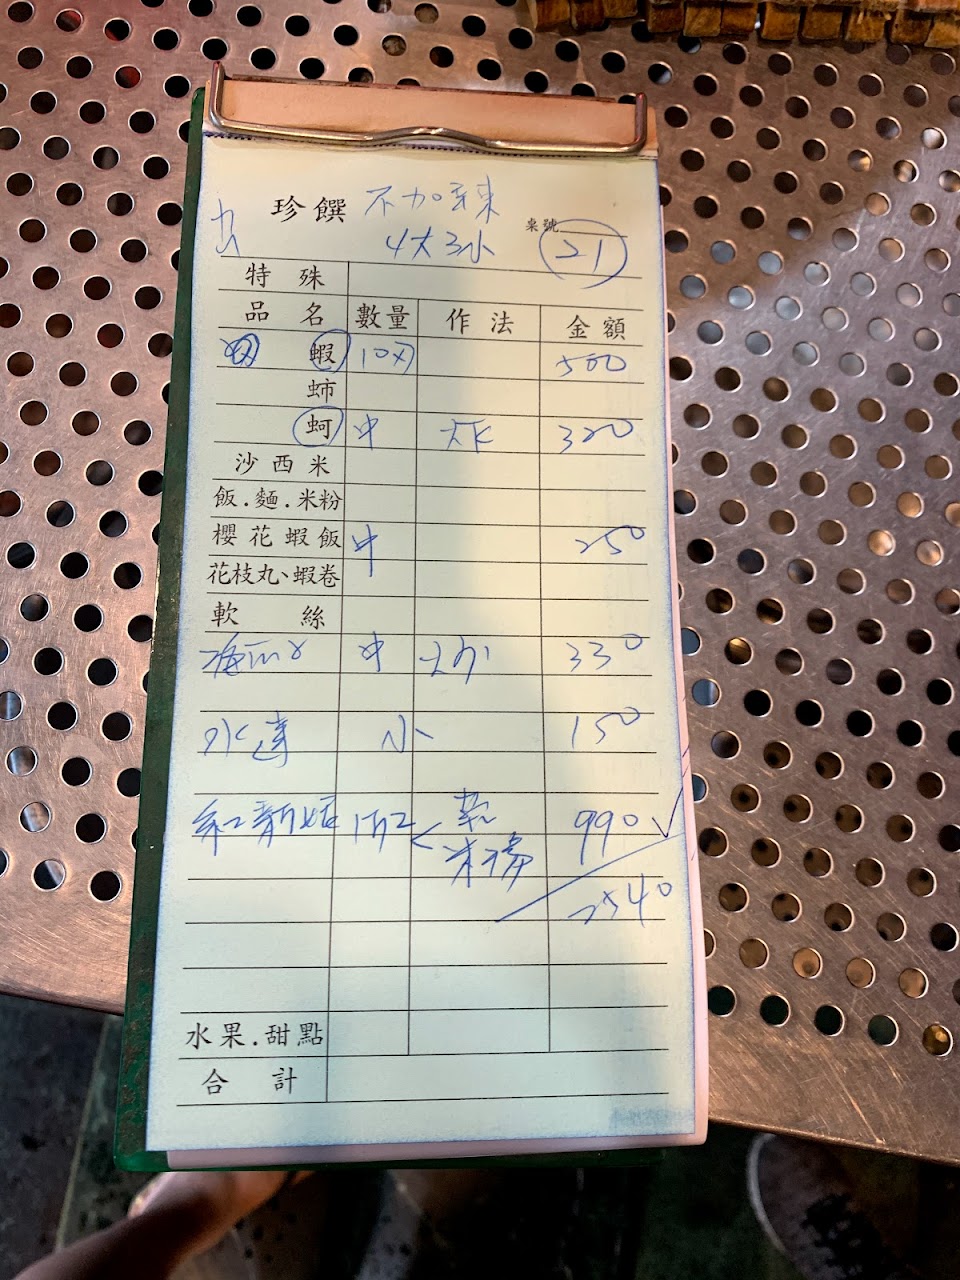 珍饌 不加辣
桌號 21
4大3小
特殊
品名 數量 作法 金額
蝦 10 500
蛳
蚵 中 320
沙西米
飯.麵.米粉
櫻花蝦飯 中 250
花枝丸、蝦卷
軟絲
海瓜子 中 炒 330
水蓮 小 150
紅新娘 990
米粉
2540
水果.甜點
合計